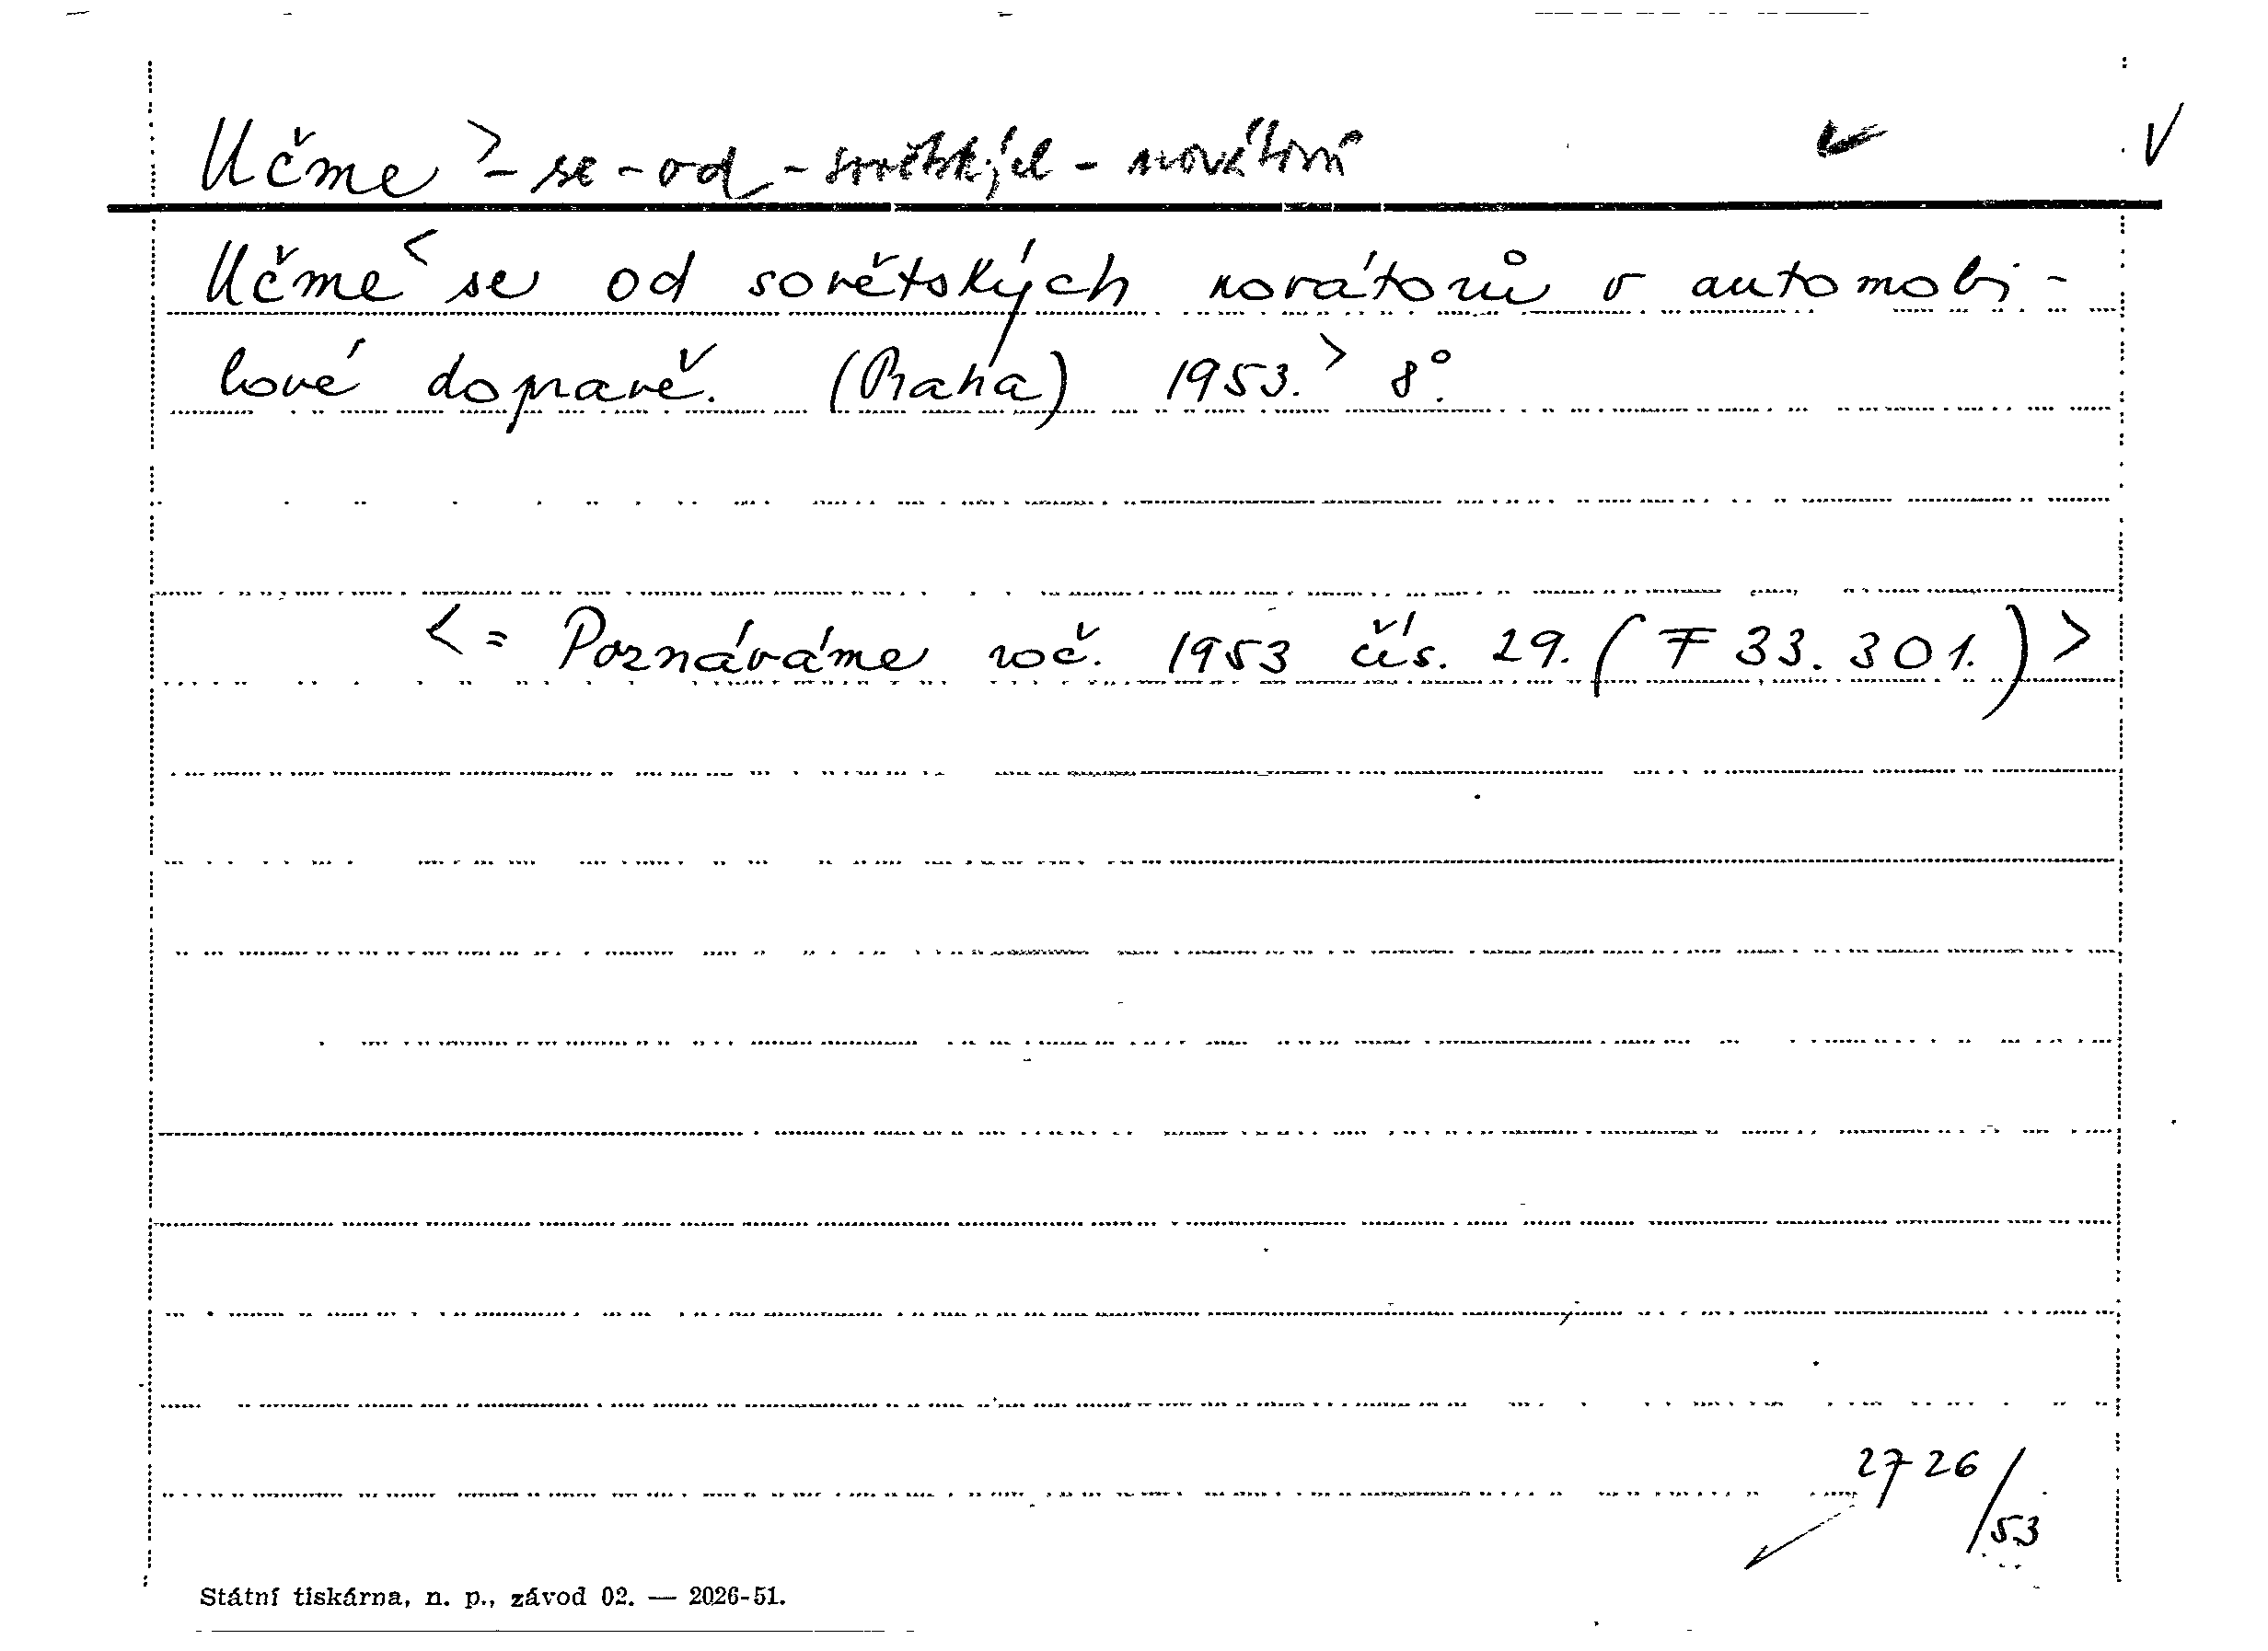 Učme > - se - od - sovětských - novátorů
Učme < se od sovětských novátorů v automobi-
lové dopravě. (Praha) 1953. > 8°.
< = Poznáváme roč. 1953 čís. 29. (F 33.301.) >
2726/53
Státní tiskárna, n. p., závod 02. — 2026-51.